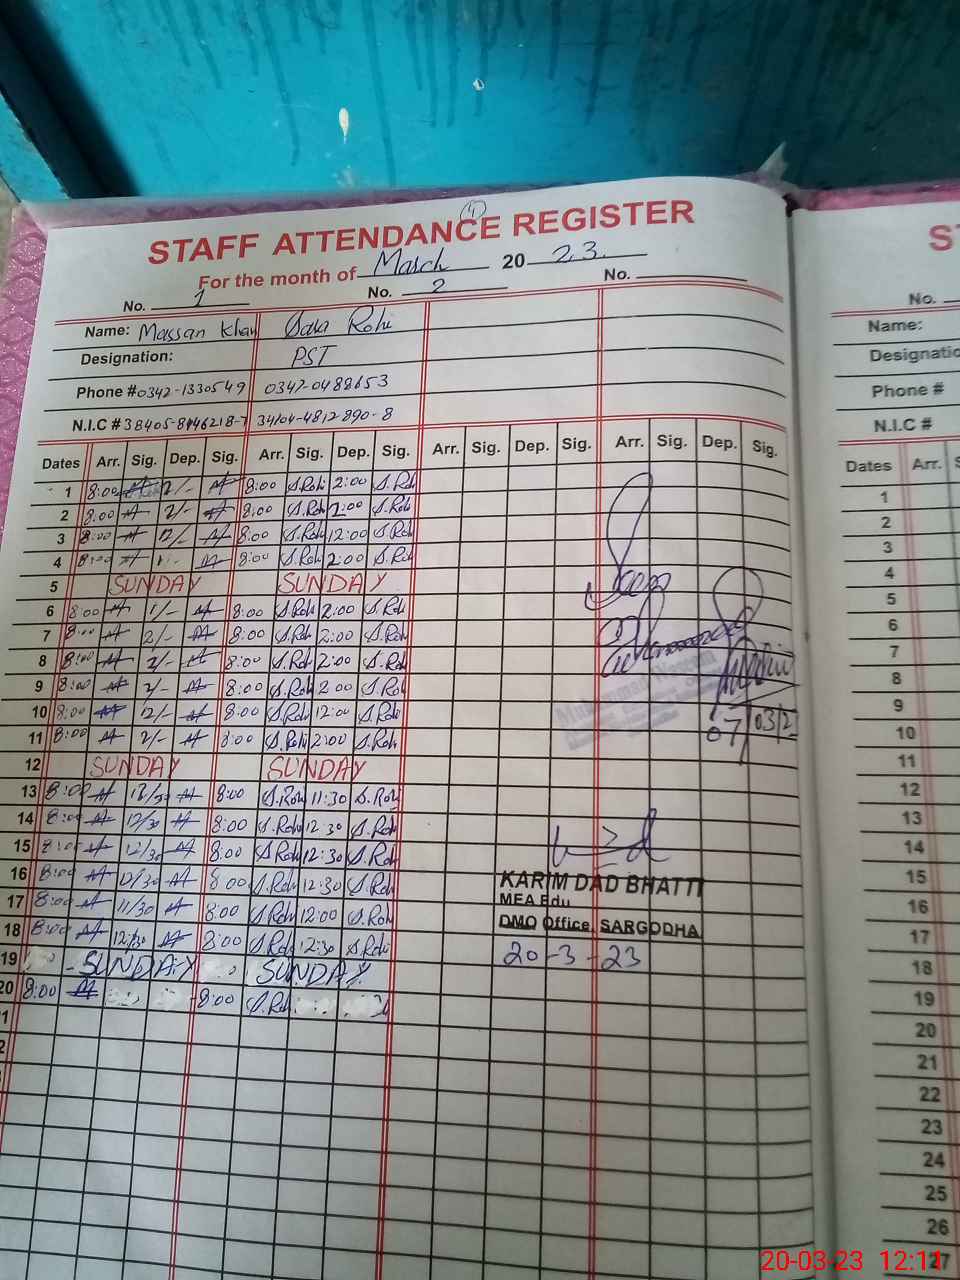 STAFF ATTENDANCE REGISTER
For the month of March 2023.
No. 1 No. 2 No.
Name: Massan Khan Sada Rohi
Designation: PST
Phone # 0342-1330549 0347-0488653
N.I.C # 38405-8946218-7 34104-4812890-8
Dates Arr. Sig. Dep. Sig. Arr. Sig. Dep. Sig. Arr. Sig. Dep. Sig. Arr. Sig. Dep. Sig.
1 8:00 2/- 8:00 S.Rohi 2:00 S.Rohi
2 8:00 2/- 8:00 S.Rohi 2:00 S.Rohi
3 8:00 12/- 8:00 S.Rohi 12:00 S.Rohi
4 8:00 8:00 S.Rohi 2:00 S.Rohi
5 SUNDAY SUNDAY
6 8:00 1/- 8:00 S.Rohi 2:00 S.Rohi
7 8:00 2/- 8:00 S.Rohi 2:00 S.Rohi
8 8:00 2/- 8:00 S.Rohi 2:00 S.Rohi
9 8:00 2/- 8:00 S.Rohi 2:00 S.Rohi
10 8:00 12/- 8:00 S.Rohi 12:00 S.Rohi
07/03/23
11 8:00 2/- 8:00 S.Rohi 2:00 S.Rohi
12 SUNDAY SUNDAY
13 8:00 12/30 8:00 S.Rohi 11:30 S.Rohi
14 8:00 12/30 8:00 S.Rohi 12:30 S.Rohi
15 8:00 12/30 8:00 S.Rohi 12:30 S.Rohi
16 8:00 12/30 8:00 S.Rohi 12:30 S.Rohi
17 8:00 11/30 8:00 S.Rohi 12:00 S.Rohi
18 8:00 12/30 8:00 S.Rohi 12:30 S.Rohi
19 SUNDAY SUNDAY
20 8:00 8:00 S.Rohi
KARIM DAD BHATTI
MEA Edu
DMO Office, SARGODHA
20-3-23
No.
Name:
Designatio
Phone #
N.I.C #
Dates Arr.
1
2
3
4
5
6
7
8
9
10
11
12
13
14
15
16
17
18
19
20
21
22
23
24
25
26
27
20-03-23 12:11